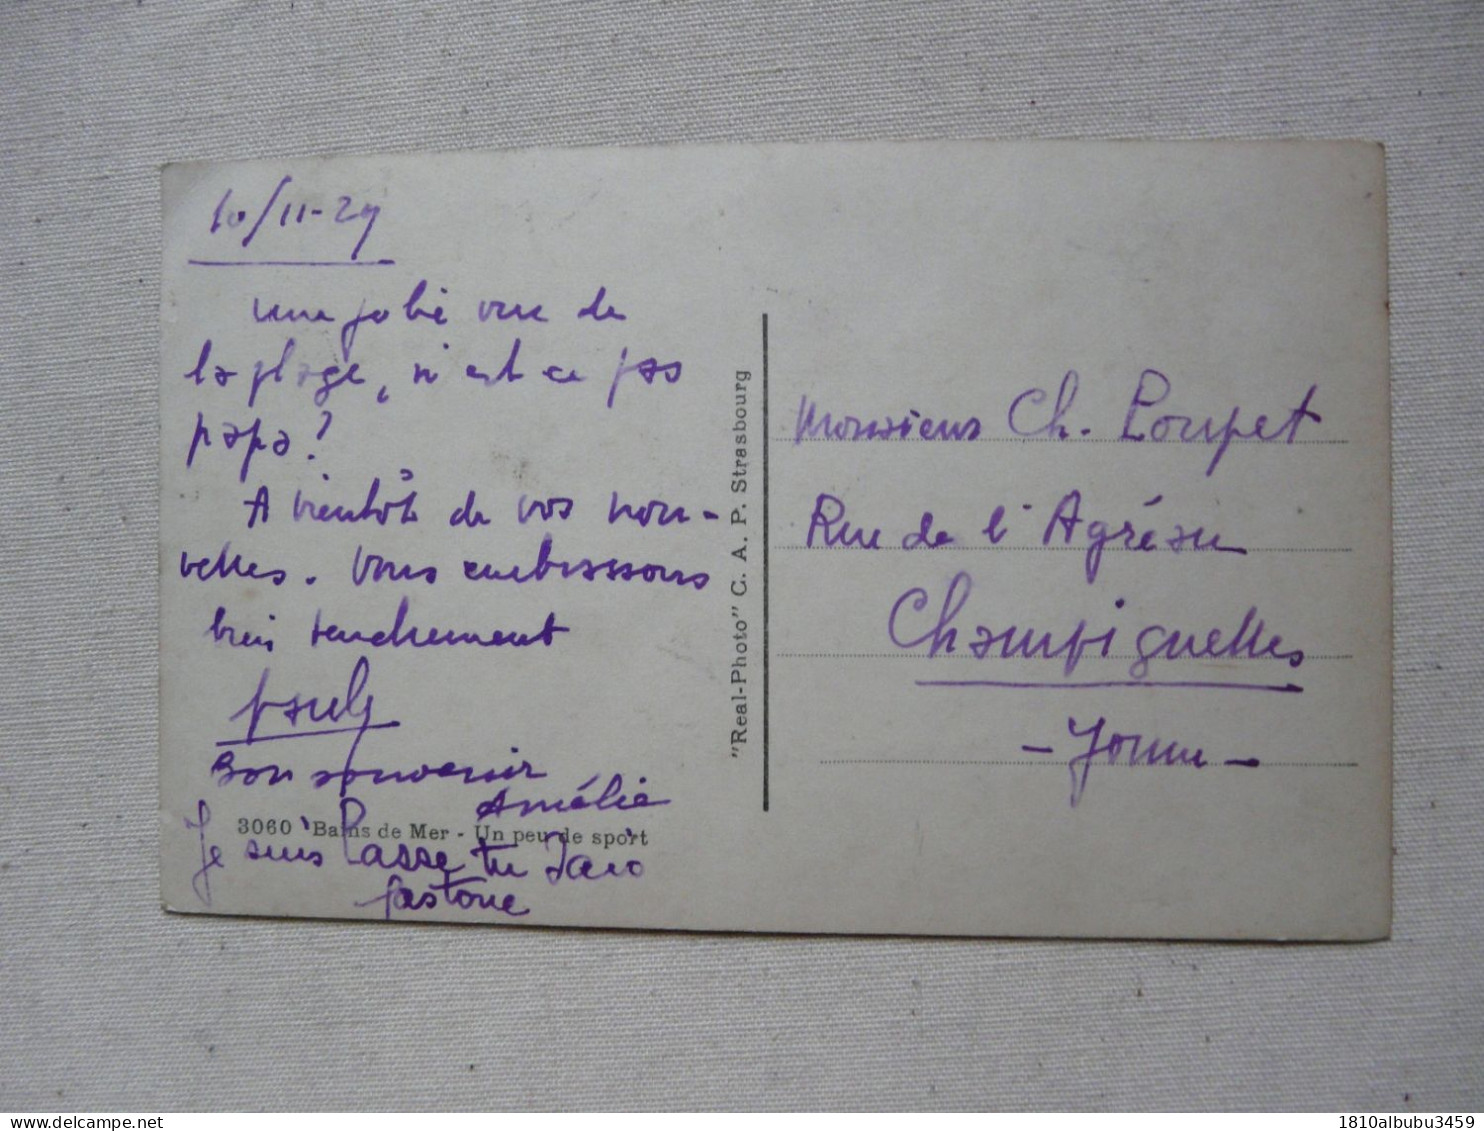 10/11-29
une jolie vue de
la plage, n'est ce pas
papa?
A bientôt de vos nou-
velles. Vous embrassons
bien tendrement
Bon souvenir
Amélie
3060 Bains de Mer - Un peu de sport
Je suis
Gastone
"Real-Photo" C. A. P. Strasbourg
Monsieur Ch. Loupet
Rue de l'Agréau
Champignelles
- Yonne -
1810albubu3459